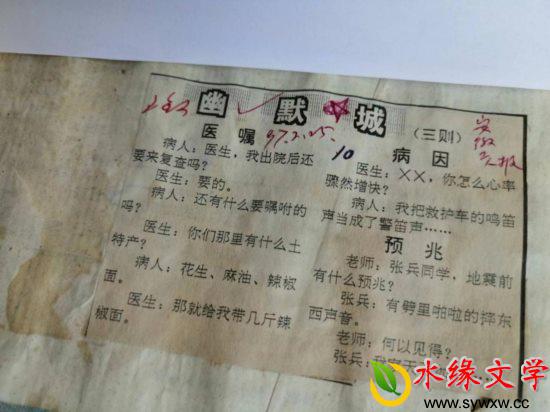 幽默城
（三则）
97.2.25.
安徽
医嘱
病人：医生，我出院后还
要来复查吗？
医生：要的。
病人：还有什么要嘱咐的
吗？
医生：你们那里有什么土
特产？
病人：花生、麻油、辣椒
面。
医生：那就给我带几斤辣
椒面。
10
病因
医生：××，你怎么心率
骤然增快？
病人：我把救护车的鸣笛
声当成了警笛声……
预兆
老师：张兵同学，地震前
有什么预兆？
张兵：有劈里啪啦的摔东
西声音。
老师：何以见得？
张兵：我
水缘文学
www.sywxw.cc